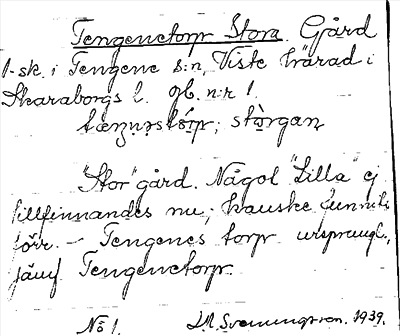 Tengenetorp Stora. Gård
1. sk. i Tengene s:n, Viste härad i
Skaraborgs l. gb. n:r 1.
tæŋnəstó̀rp; stò̀rgaɳ
"Stor"gård. Något "Lilla" ej
tillfinnandes nu, kanske funnits
förr. – Tengenes torp ursprungl.,
jämf Tengenetorp.
No 1. 1939.